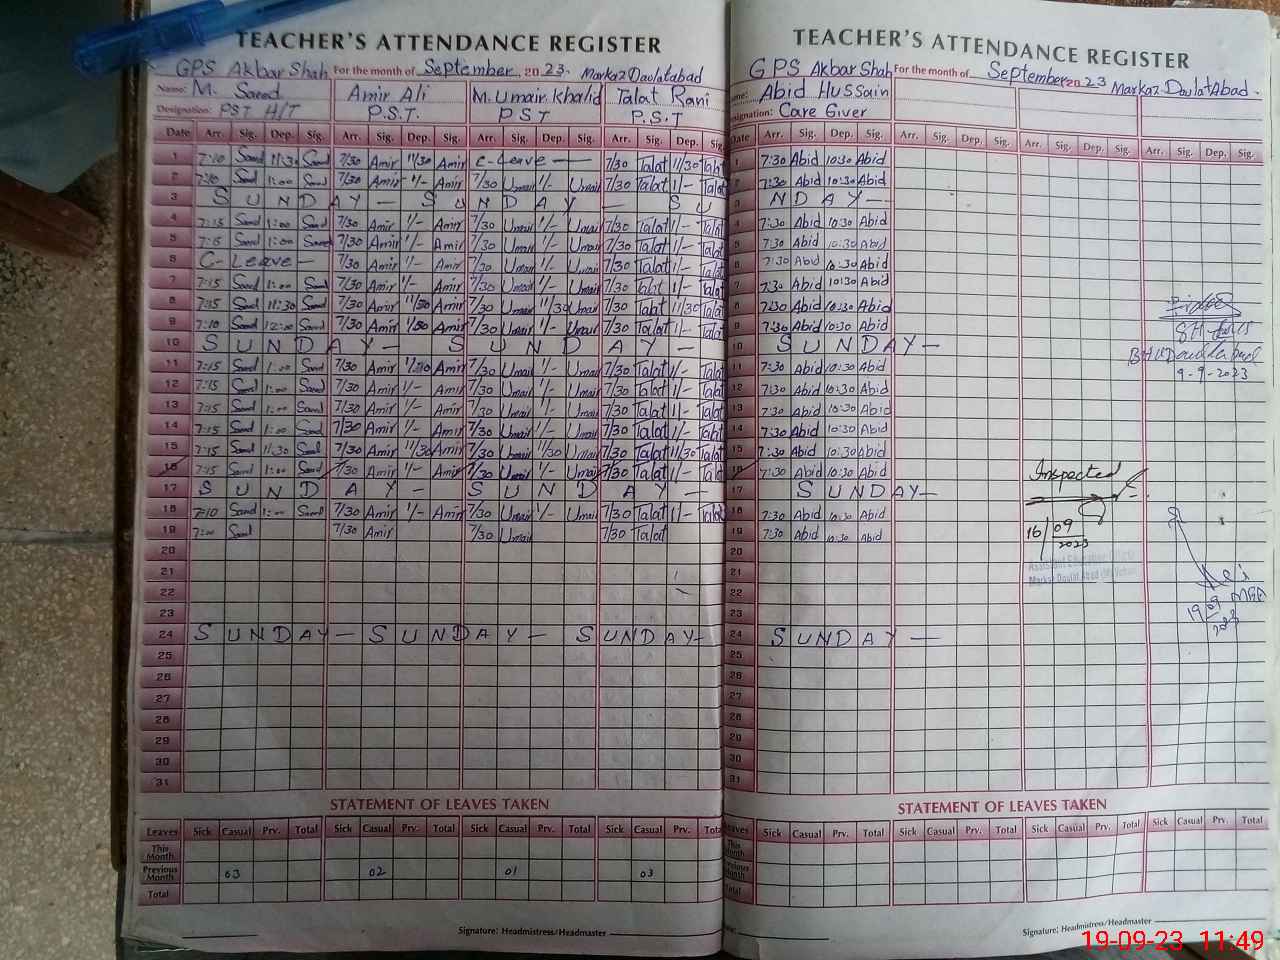 TEACHER'S ATTENDANCE REGISTER
GPS Akbar Shah For the month of September, 2023. Markaz Daulatabad
Name: M. Saeed Amir Ali M. Umair Khalid Talat Rani
Designation: PST H/T P.S.T. PST P.S.T
Date Arr. Sig. Dep. Sig. Arr. Sig. Dep. Sig. Arr. Sig. Dep. Sig. Arr. Sig. Dep. Sig.
1 7:10 Saeed 11:30 Saeed 7/30 Amir 11/30 Amir C-Leave — 7/30 Talat 11/30 Talat
2 7:10 Saeed 1:00 Saeed 7/30 Amir 1/- Amir 7/30 Umair 1/- Umair 7/30 Talat 1/- Talat
3 SUNDAY — SUNDAY — SU
4 7:15 Saeed 1:00 Saeed 7/30 Amir 1/- Amir 7/30 Umair 1/- Umair 7/30 Talat 1/- Talat
5 7:15 Saeed 1:00 Saeed 7/30 Amir 1/- Amir 7/30 Umair 1/- Umair 7/30 Talat 1/- Talat
6 C-Leave — 7/30 Amir 1/- Amir 7/30 Umair 1/- Umair 7/30 Talat 1/- Talat
7 7:15 Saeed 1:00 Saeed 7/30 Amir 1/- Amir 7/30 Umair 1/- Umair 7/30 Talat 1/- Talat
8 7:15 Saeed 11:30 Saeed 7/30 Amir 11/30 Amir 7/30 Umair 11/30 Umair 7/30 Talat 11/30 Talat
9 7:10 Saeed 12:00 Saeed 7/30 Amir Amir 7/30 Umair 1/- Umair 7/30 Talat 1/- Talat
10 SUNDAY — SUNDAY —
11 7:15 Saeed 1:00 Saeed 7/30 Amir Amir 7/30 Umair 1/- Umair 7/30 Talat 1/- Talat
12 7:15 Saeed 1:00 Saeed 7/30 Amir 1/- Amir 7/30 Umair 1/- Umair 7/30 Talat 1/- Talat
13 7:15 Saeed 1:00 Saeed 7/30 Amir 1/- Amir 7/30 Umair 1/- Umair 7/30 Talat 1/- Talat
14 7:15 Saeed 1:00 Saeed 7/30 Amir 1/- Amir 7/30 Umair 1/- Umair 7/30 Talat 1/- Talat
15 7:15 Saeed 11:30 Saeed 7/30 Amir 11/30 Amir 7/30 Umair 11/30 Umair 7/30 Talat 11/30 Talat
16 7:15 Saeed 1:00 Saeed 7/30 Amir 1/- Amir 7/30 Umair 1/- Umair 7/30 Talat 1/- Talat
17 SUNDAY — SUNDAY —
18 7:10 Saeed 1:00 Saeed 7/30 Amir 1/- Amir 7/30 Umair 1/- Umair 7/30 Talat 1/- Talat
19 7:00 Saeed 7/30 Amir 7/30 Umair 7/30 Talat
20
21
22
23
24 SUNDAY — SUNDAY — SUNDAY —
25
26
27
28
29
30
31
STATEMENT OF LEAVES TAKEN
Leaves Sick Casual Prv. Total Sick Casual Prv. Total Sick Casual Prv. Total Sick Casual Prv. Total
This Month
Previous Month 03 02 01 03
Total
Signature: Headmistress/Headmaster
TEACHER'S ATTENDANCE REGISTER
GPS Akbar Shah For the month of September 2023 Markaz Daulat Abad.
Name: Abid Hussain
Designation: Care Giver
Date Arr. Sig. Dep. Sig. Arr. Sig. Dep. Sig. Arr. Sig. Dep. Sig. Arr. Sig. Dep. Sig.
1 7:30 Abid 10:30 Abid
2 7:30 Abid 10:30 Abid
3 NDAY —
4 7:30 Abid 10:30 Abid
5 7:30 Abid 10:30 Abid
6 7:30 Abid 10:30 Abid
7 7:30 Abid 10:30 Abid
8 7:30 Abid 10:30 Abid
9 7:30 Abid 10:30 Abid
10 SUNDAY —
9-9-2023
11 7:30 Abid 10:30 Abid
12 7:30 Abid 10:30 Abid
13 7:30 Abid 10:30 Abid
14 7:30 Abid 10:30 Abid
15 7:30 Abid 10:30 Abid
16 7:30 Abid 10:30 Abid
Inspected
17 SUNDAY —
18 7:30 Abid 10:30 Abid
19 7:30 Abid 10:30 Abid
16/09/2023
20
Assistant Education Officer
21
Markaz Daulat Abad
22
MEA
23
19/09/2023
24 SUNDAY —
25
26
27
28
29
30
31
STATEMENT OF LEAVES TAKEN
Leaves Sick Casual Prv. Total Sick Casual Prv. Total Sick Casual Prv. Total Sick Casual Prv. Total
This Month
Previous Month
Total
Signature: Headmistress/Headmaster
19-09-23 11:49